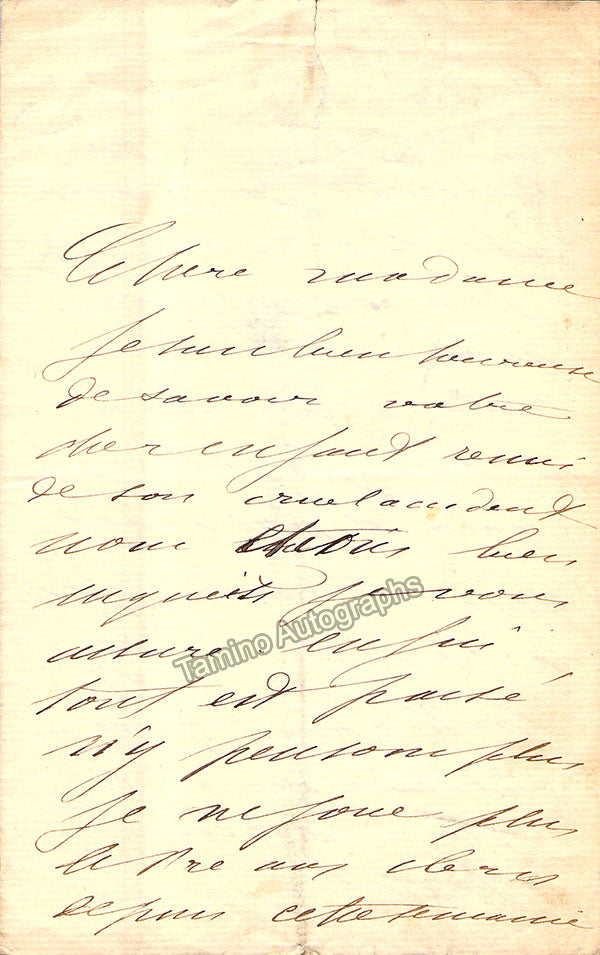 Chere madame
Je suis bien heureuse
de savoir votre
cher enfant remi
de son cruel accident
nous etions bien
inquiets je vous
assure. enfin
tout est passé
n'y pensons plus
Je ne joue plus
depuis cette semaine
Tamino Autographs